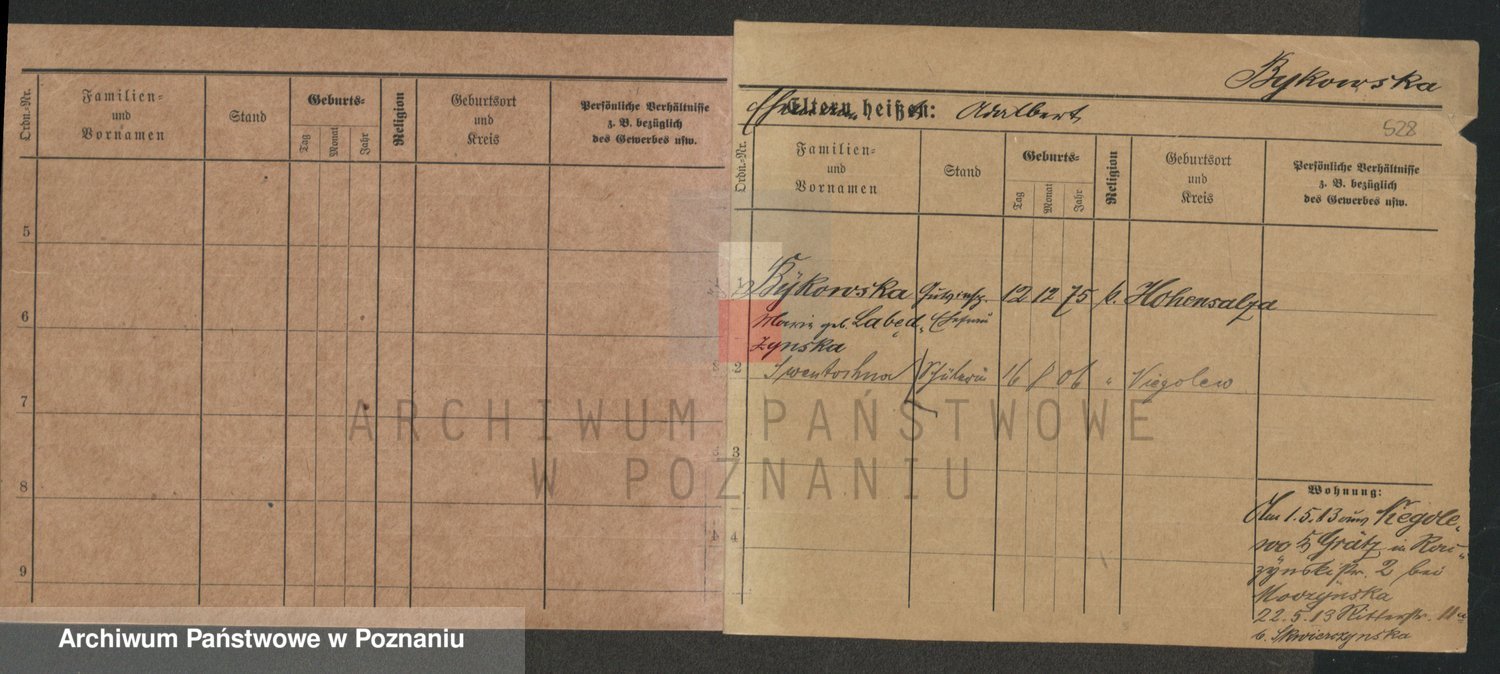 Ordn.-Nr.
Familien-
und
Vornamen
Stand
Geburts-
Tag
Monat
Jahr
Religion
Geburtsort
und
Kreis
Persönliche Verhältnisse
z. B. bezüglich
des Gewerbes usw.
5
6
7
8
9
Bykowska
Eltern heißen: Adalbert
528
Ordn.-Nr.
Familien-
und
Vornamen
Stand
Geburts-
Tag
Monat
Jahr
Religion
Geburtsort
und
Kreis
Persönliche Verhältnisse
z. B. bezüglich
des Gewerbes usw.
1 Bÿkowska Gutsinsp. 12 12 75 k. Hohensalza
Maria geb. Labęd„ Ehefrau
zynska
2 Swentoslna Schülerin 16 8 06 „ Niegolew
3
4
Wohnung:
Am 1.5.13 aus Niegole„
wo Grätz in
2 bei
Moszÿnska
22.5.13 Ritterstr. 11
b. Skwierczynska
ARCHIWUM PAŃSTWOWE
W POZNANIU
Archiwum Państwowe w Poznaniu